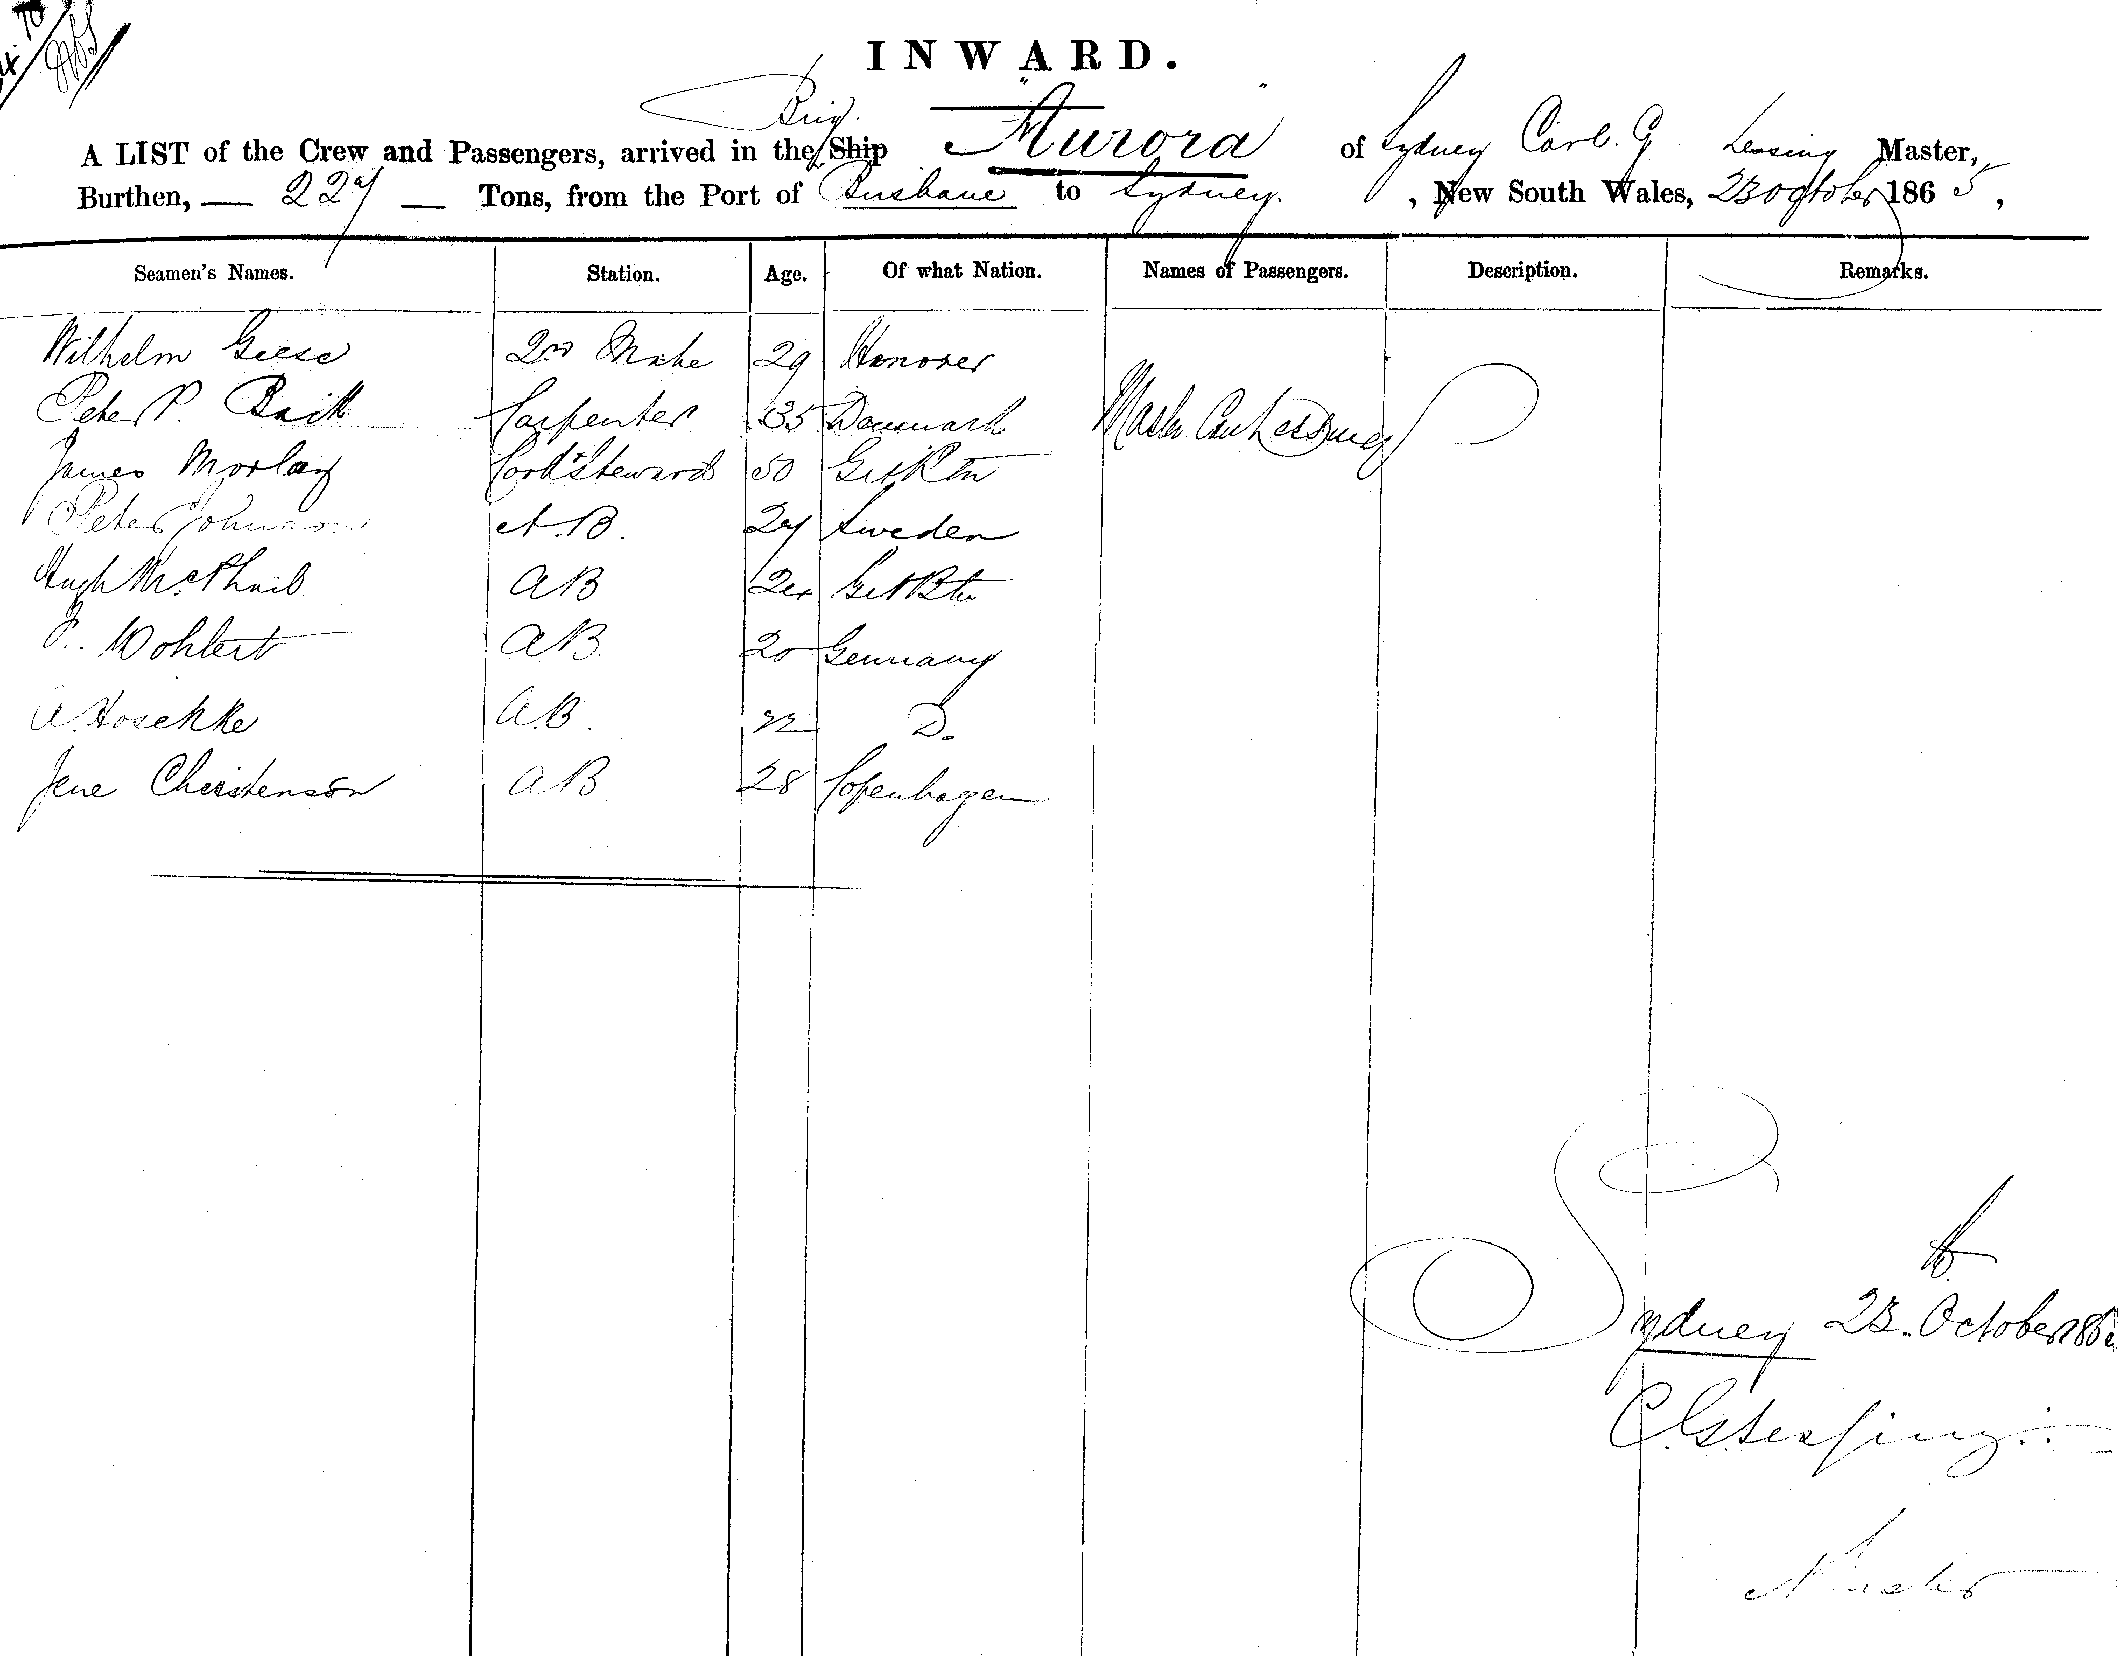 INWARD.
Brig.
A LIST of the Crew and Passengers, arrived in the Ship "Aurora" of Sydney Carl. G Lessing Master,
Burthen, — 227 — Tons, from the Port of Brisbane to Sydney. , New South Wales, 23 October 1865,
Seamen's Names. Station. Age. Of what Nation. Names of Passengers. Description. Remarks.
Wilhelm Giese 2nd Mate 29 Hanover
Peter P. Carpenter 35 Denmark Master
James Morlay Cook & Steward 50 Gt Rtn
Peter Johnson A.B. Sweden
Hugh McPhail AB Gt Btn
Wohlert AB 20 Germany
A. Hoschke A.B. 22 D.
Jene Christenson AB 28 Copenhagen
Sydney 23. October 186
C. G. Lessing
Master